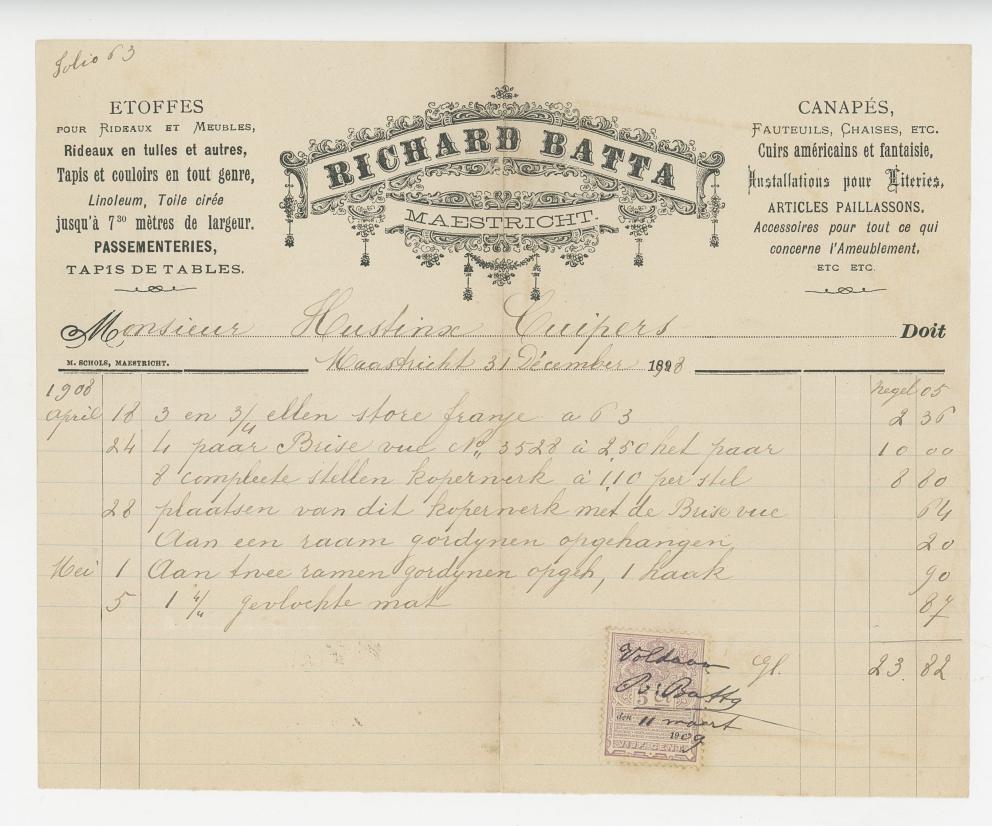 Folio 63
ETOFFES
POUR RIDEAUX ET MEUBLES,
Rideaux en tulles et autres,
Tapis et couloirs en tout genre,
Linoleum, Toile cirée
jusqu'à 7³⁰ mètres de largeur.
PASSEMENTERIES,
TAPIS DE TABLES.
RICHARD BATTA
MAESTRICHT.
CANAPÉS,
FAUTEUILS, CHAISES, ETC.
Cuirs américains et fantaisie,
Installations pour Literies,
ARTICLES PAILLASSONS,
Accessoires pour tout ce qui
concerne l'Ameublement,
ETC ETC.
Monsieur Hustinx Cuipers Doit
M. SCHOLS, MAESTRICHT.
Maastricht 31 Décember 1908
1908 05
April 18 3 en 3/4 ellen store franje a 63 2 36
24 4 paar Brise vue No 3528 à 250 het paar 10 00
8 compleete stellen koperwerk à 1,10 per stel 8 80
28 plaatsen van dit koperwerk met de Brise vue 64
Aan een raam gordynen opgehangen 20
Mei 1 Aan twee ramen gordynen opgeh, 1 haak 90
5 1 gevlochte mat 87
Gl. 23.82
Voldaan
Batta
5 Ct
den 11 maart
1909
VIJF CENT